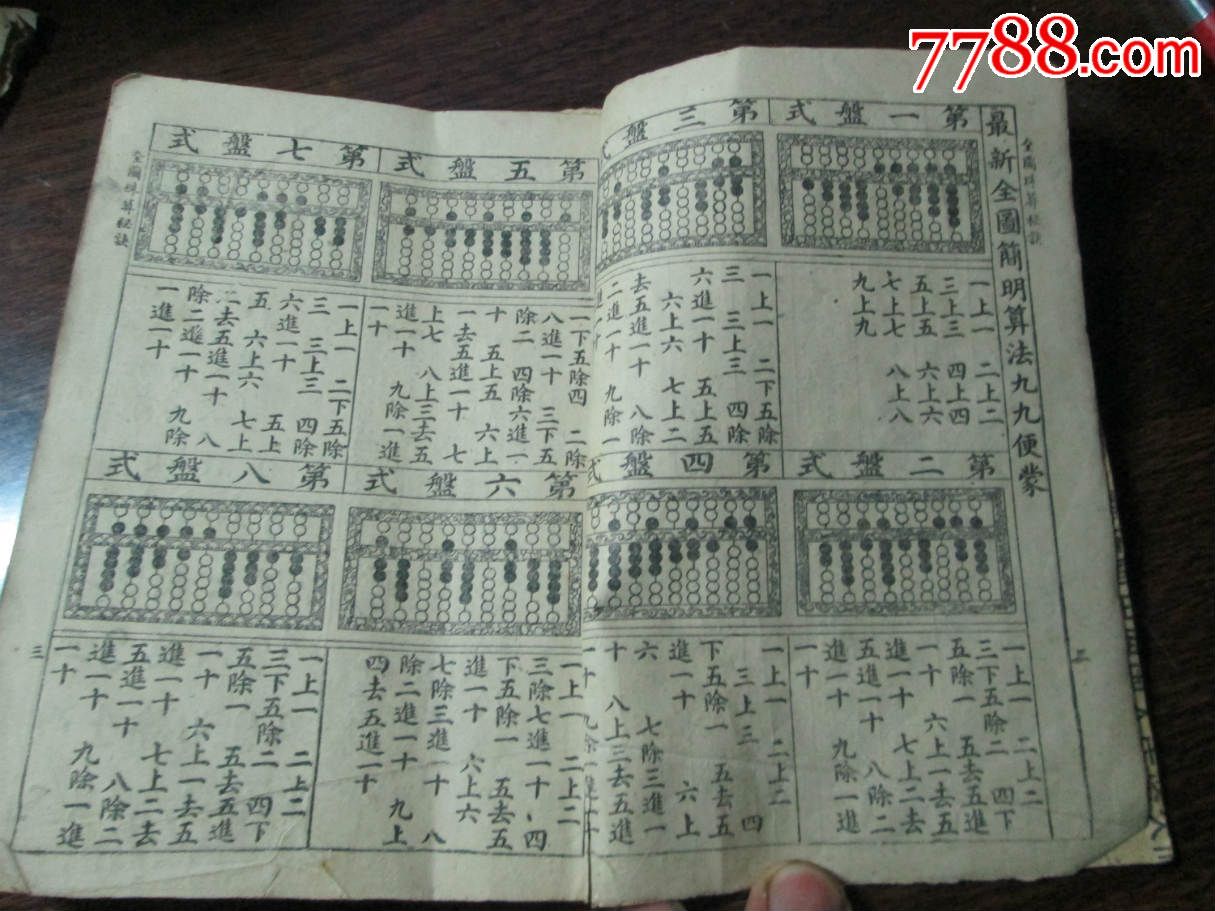 7788.com
全圖珠算秘訣
二
最新全圖簡明算法九九便蒙
第一盤式
一上一 二上二
三上三 四上四
五上五 六上六
七上七 八上八
九上九
第二盤式
一上一 二上二
三下五除二 四下
五除一 五去五進
一十 六上一去五
進一十 七上二去
五進一十 八除二
進一十 九除一進
一十
第三盤式
一上一 二下五除
三 三上三 四除
六進一十 五上五
六上六 七上二
去五進一十 八除
二進一十 九除一
第四盤式
一上一 二上二
三上三 四
下五除一 五去五
進一十 六上
六 七除三進一
十 八上三去五進
一十 九除一進一十
第五盤式
一下五除四 二除
八進一十 三下五
除二 四除六進一
十 五上五 六上
一去五進一十 七
上七 八上三去五
進一十 九除一進
一十
第六盤式
一上一 二上二
三除七進一十 四
下五除一 五去五
進一十 六上六
七除三進一十 八
除二進一十 九上
四去五進一十
第七盤式
一上一 二下五除
三 三上三 四除
六進一十 五上
五 六上六 七上
二去五進一十 八
除二進一十 九除
一進一十
第八盤式
一上一 二上二
三下五除二 四下
五除一 五去五進
一十 六上一去五
進一十 七上二去
五進一十 八除二
進一十 九除一進
一十
全圖珠算秘訣
三